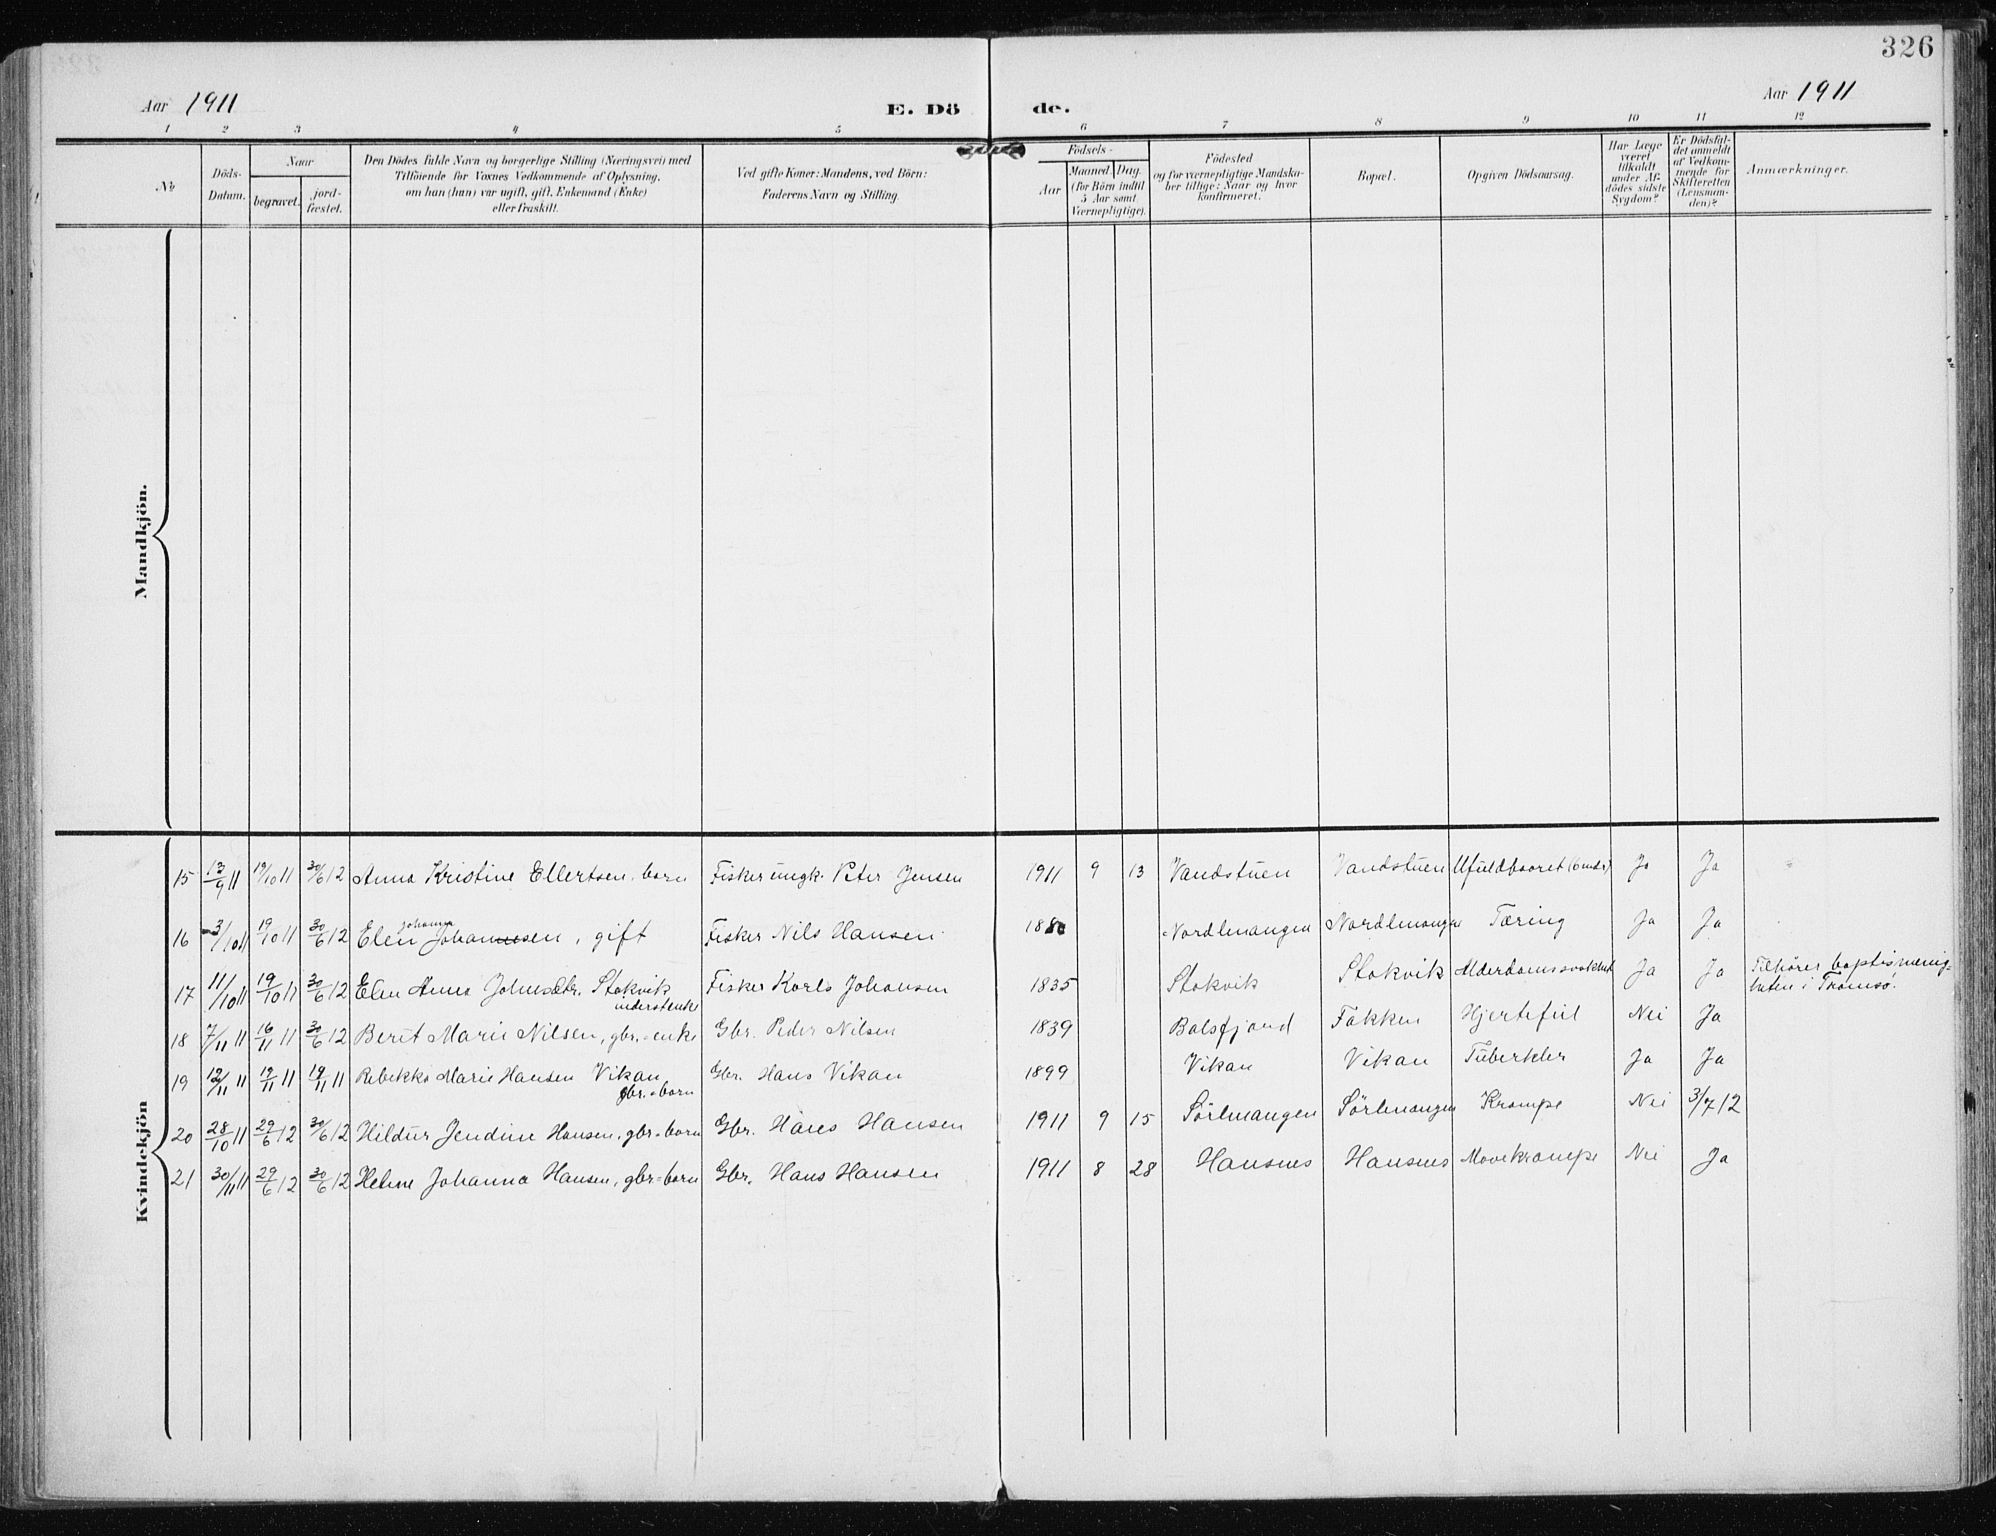 326
Aar 1911
E. Dö de.
Aar 1911
1 2 3 4 5 6 7 8 9 10 11 12
No
Döds-
Datum.
Naar
begravet.
jord-
fæstet.
Den Dödes fulde Navn og borgerlige Stilling (Næringsvei) med
Tilföiende for Voxnes Vedkommende af Oplysning,
om han (hun) var ugift, gift, Enkemand (Enke)
eller fraskilt.
Ved gifte Koner: Mandens, ved Börn:
Faderens Navn og Stilling.
Födsels-
Aar
Maaned. Dag.
(for Börn indtil
5 Aar samt
Værnepligtige).
Födested
og for værnepligtige Mandska-
ber tillige: Naar og hvor
konfirmeret.
Bopæl.
Opgiven Dödsaarsag.
Har Læge
været
tilkaldt
under Af-
dödes sidste
Sygdom?
Er Dödsfal-
det anmeldt
af Vedkom-
mende for
Skifteretten
(Lensman-
den)?
Anmærkninger.
Mandkjön.
Kvindekjön
15 13/9 11 19/10 11 30/6 12 Anna Kristine Ellertsen, barn Fisker ungk. Peter Jensen 1911 9 13 Vandstuen Vandstuen Ufuldbaaret (6 mdr) Ja Ja
Johanna
16 3/10 11 19/10 11 30/6 12 Elen Johannesen, gift Fisker Nils Hansen 188 Nordlenangen Nordlenangen Tæring Ja Ja
17 11/10 11 19/10 11 30/6 12 Elen Anna Johnsdtr. Stokvik Fisker Karls Johansen 1835 Stokvik Stokvik Alderdomssvakhet Ja Ja Tilhører baptismenig-
inderstenke
heten i Tromsø.
18 7/11 11 16/11 11 30/6 12 Berit Marie Nilsen, gbr.-enke Gbr. Peder Nilsen 1839 Balsfjord Fakken Hjertefeil Nei Ja
19 12/11 11 19/11 11 19/11 11 Rebekka Marie Hansen Vikan Gbr. Hans Vikan 1899 Vikan Vikan Tuberkler Ja Ja
gbr.-barn
20 28/10 11 29/6 12 30/6 12 Hildur Jendine Hansen, gbr-barn Gbr. Hans Hansen 1911 9 15 Sörlenangen Sörlenangen Krampe Nei 3/7 12
21 30/11 11 29/6 12 30/6 12 Helene Johanna Hansen, gbr-barn Gbr. Hans Hansen 1911 8 28 Hansnes Hansnes Mavekrampe Nei Ja